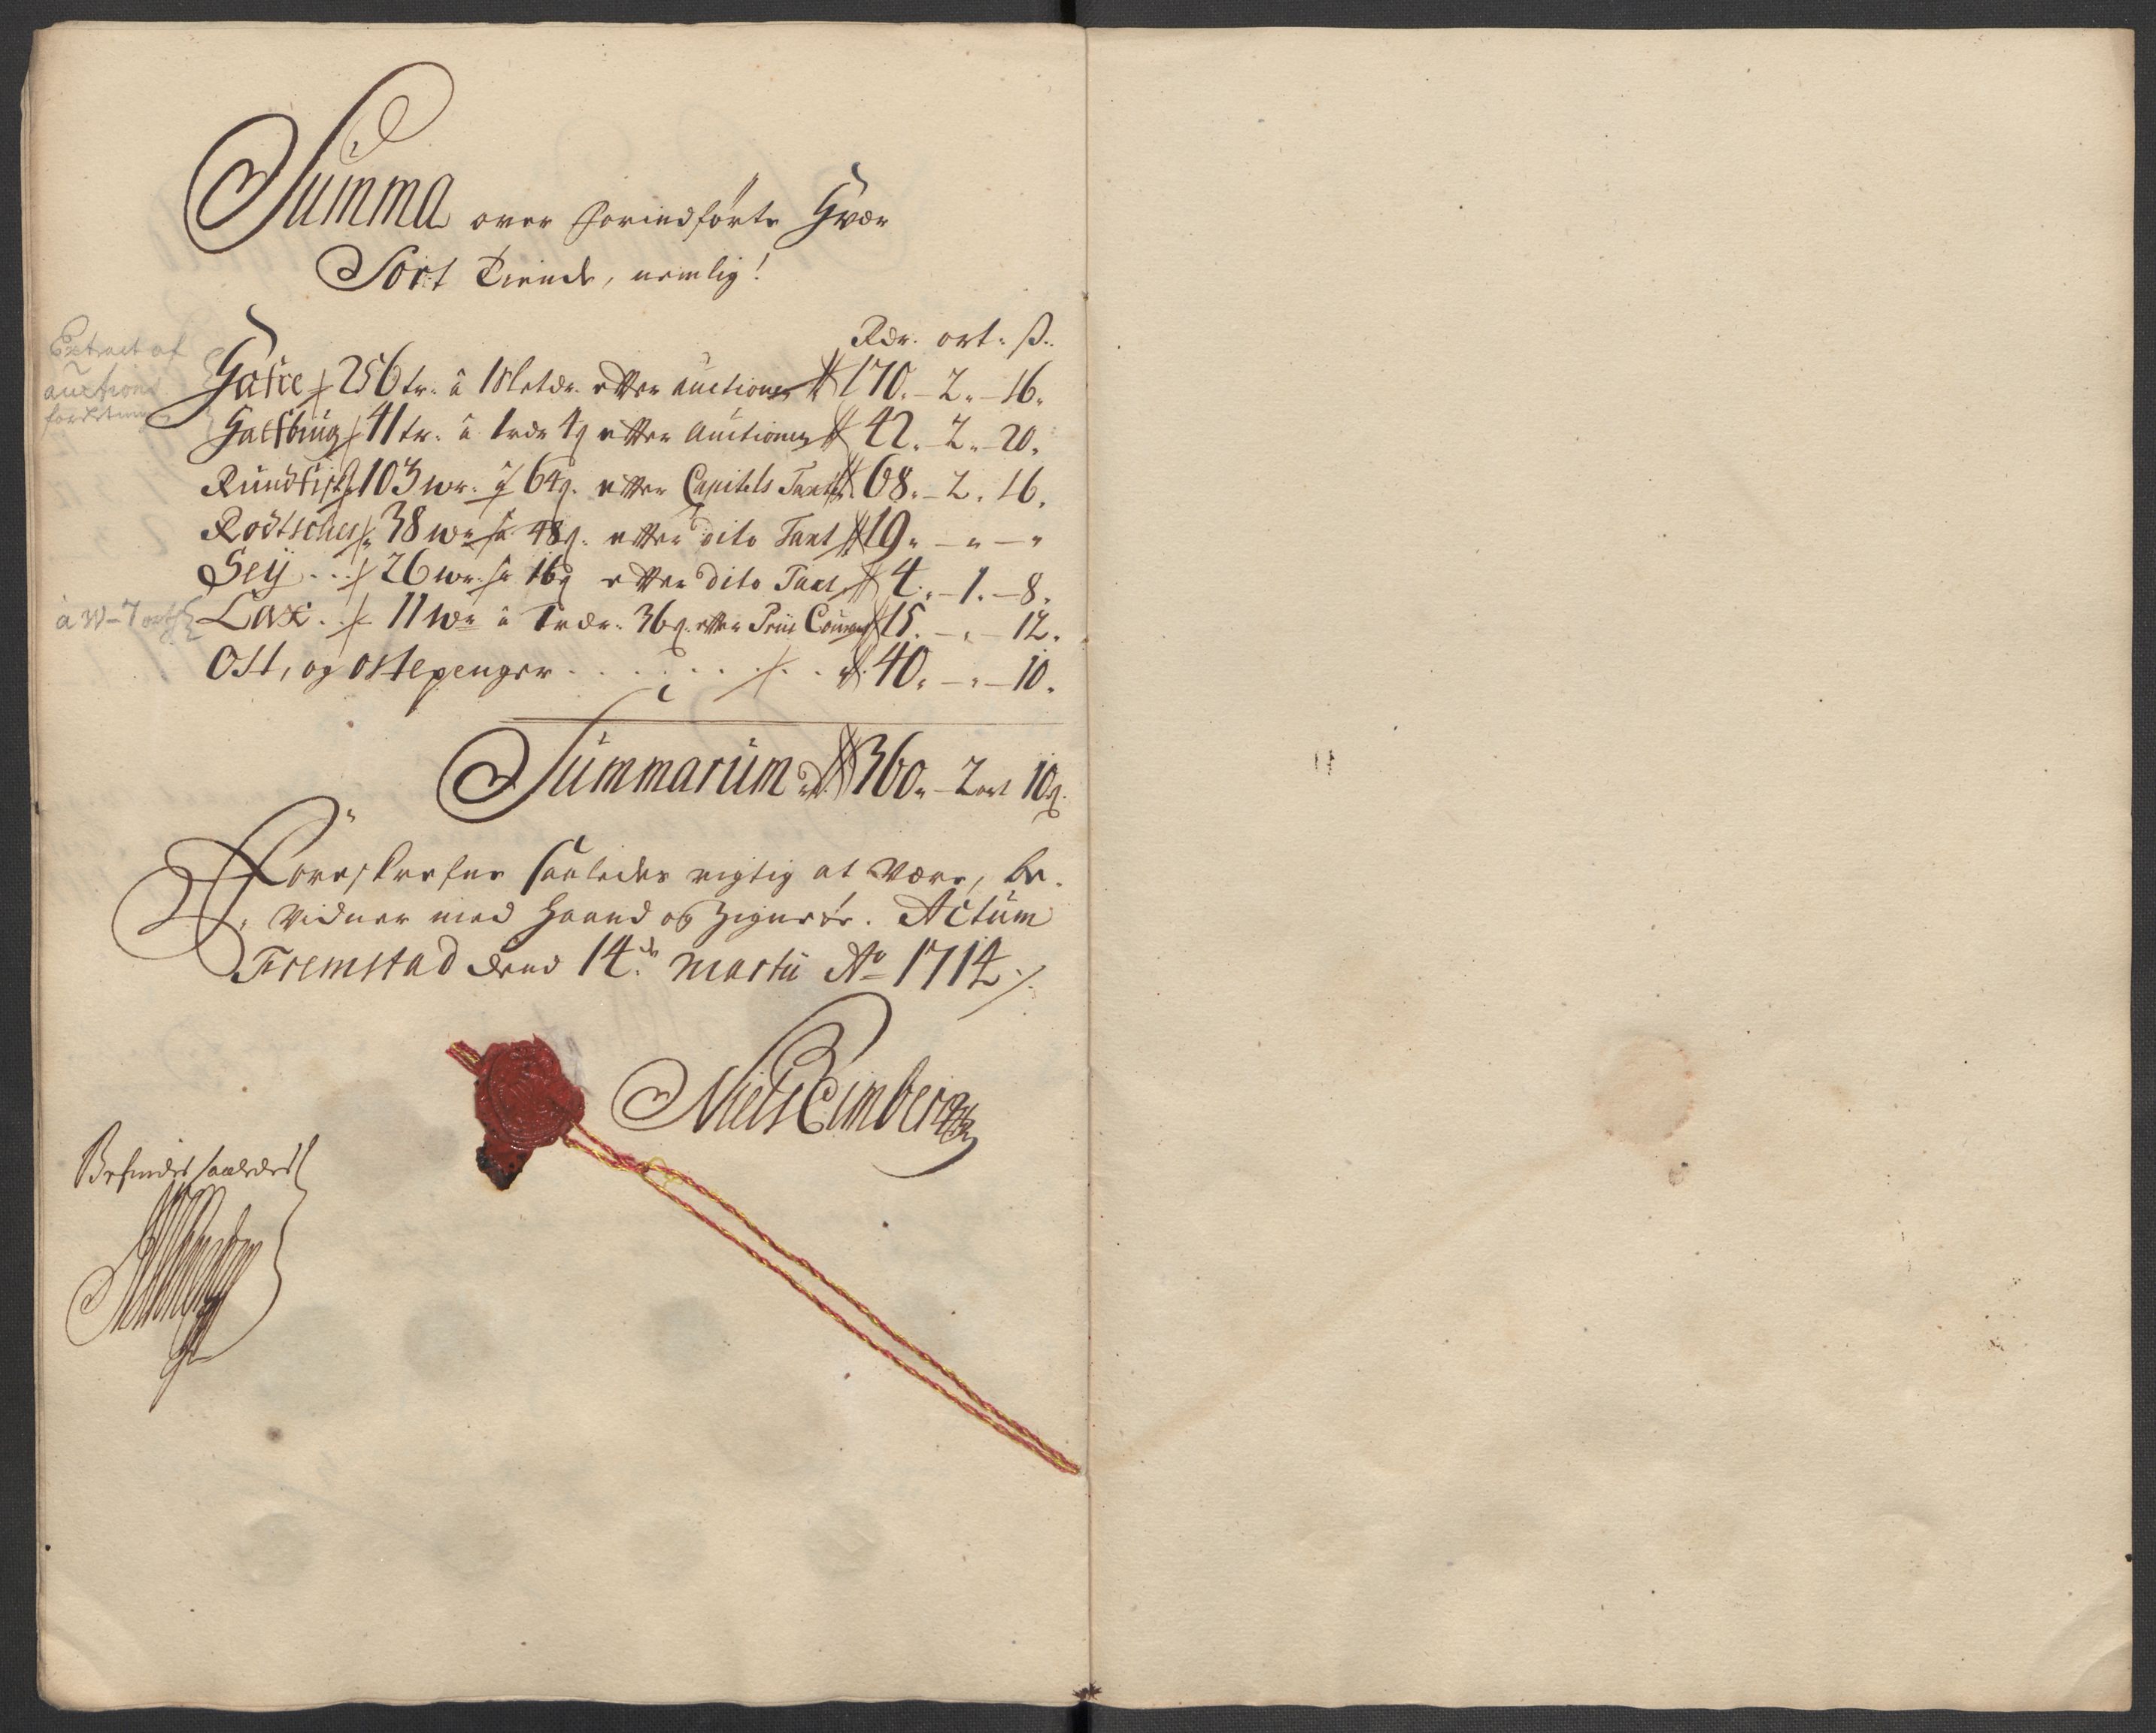 Summa over forindførte Hver
Sort Tiende, nemlig!
Rdr. ort. ß.
Extract af
auctions
forretning
Hafre 256 tr. â 16 etter auctionen 170. - 2. - 16.
41 tr. â 1 rdr 4 ß etter Auctionen 42. - 2. - 20.
Rundfisk 103 wr. â 64 ß. etter Capitels Taxt 68. - 2. 16.
Rodtscher 38 wr â 48 ß. etter dito Taxt 19. - " - "
Seÿ . . . 26 wr. â 16 ß etter dito Taxt 4. - 1. - 8.
â W - 7 ort
Lax . . 11 wr â 1 rdr. 36 ß. etter Priis Courant 15. - " - 12.
Ost, og ostepenger . . . . . . . . 40. - " - 10.
Summarum rdr 360. - 2 ort 10 ß.
Foreskrefne saaledes rigtig at være, be-
vidner med Haand og Zignete. Actum
Fremstad dend 14de Martii Ao 1714 ./.
Niels Eimberg
Befindes saaledes